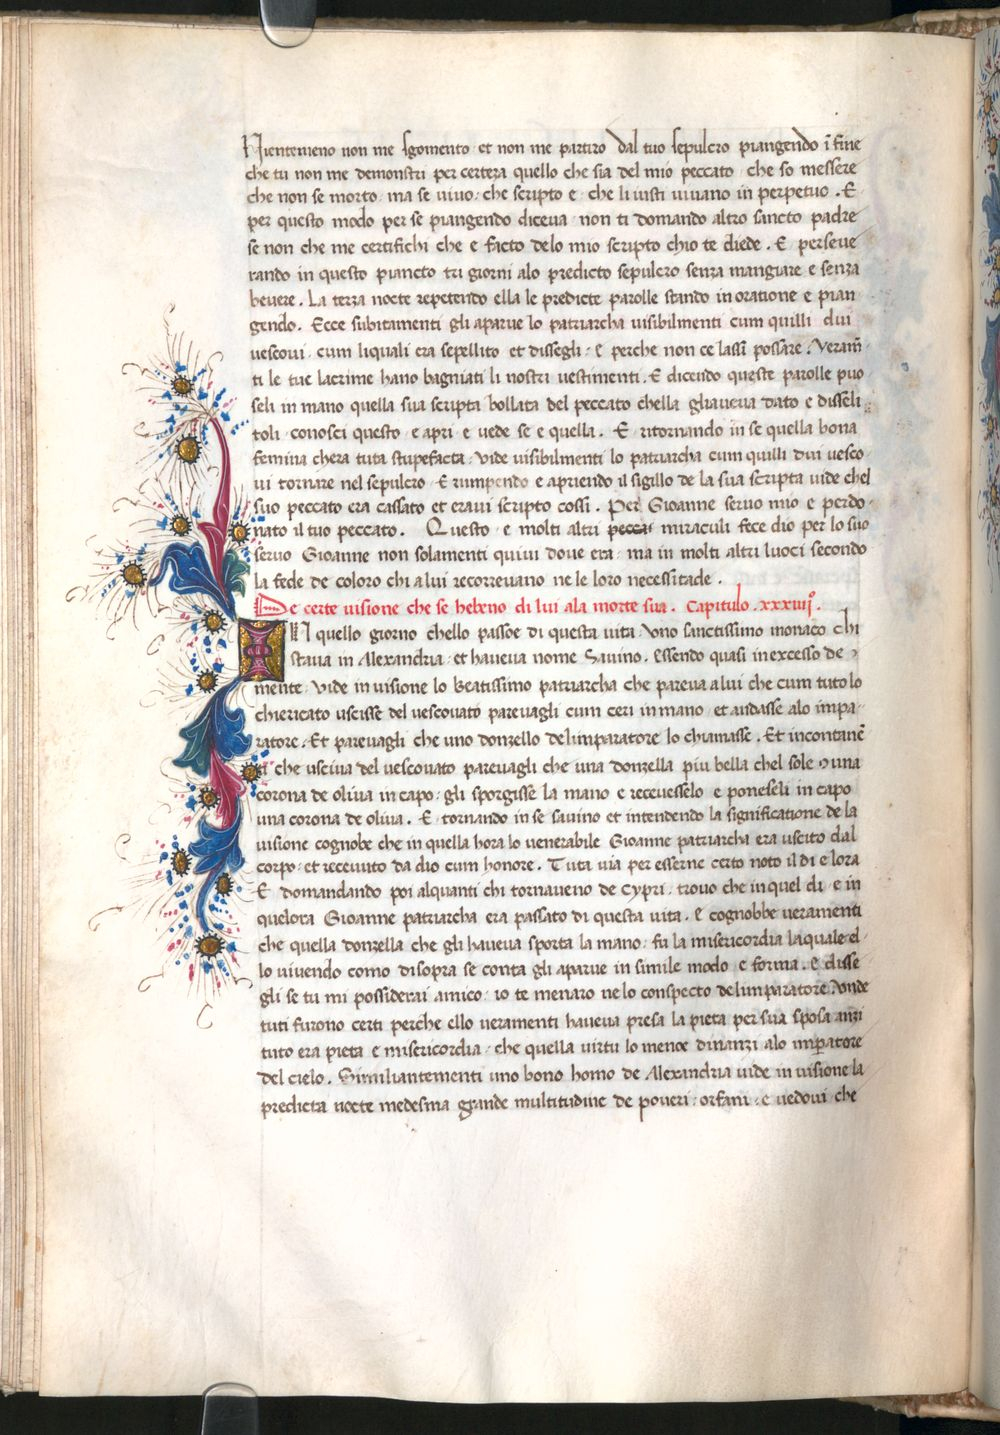 Nientemeno non me sgomento · et non me partiro dal tuo sepulcro piangendo ĩ fine
che tu non me demonstri per certeza quello che sia del mio peccato · che so messere
che non se morto · ma se vivo · che scripto e · che li iusti vivano in perpetuo . E
per questo modo per se piangendo diceva · non ti domando altro sancto padre
se non che me certifichi che e facto delo mio scripto chio te diede . E perseve
rando in questo piancto tri giorni alo predicto sepulcro senza mangiare e senza
bevere . La terza nocte repetendo ella le predicte parolle stando in oratione e pian
gendo . Ecce subitamenti gli aparve lo patriarcha visibilmenti cum quilli dui
vescovi · cum liquali era sepellito et dissegli · e perche non ce lassi possare . Veram̃
ti le tue lacrime hano bagniati li nostri vestimenti . E dicendo queste parolle puo
seli in mano quella sua scripta bollata del peccato chella gliaveva dato e disseli
toli · conosci questo · e apri · e vede se e quella . E ritornando in se quella bona
femina chera tuta stupefacta · vide visibilmenti lo patriarcha cum quilli dui vesco
vi tornare nel sepulcro · E rumpendo e apriendo il sigillo de la sua scripta vide chel
suo peccato era cassato et eravi scripto cossi . Per Gioanne servo mio e perdo
nato il tuo peccato . Questo · e molti altri pecca miraculi fece dio per lo suo
servo Gioanne non solamenti quivi dove era · ma in molti altri luoci secondo
la fede de coloro chi a lui recorrevano ne le loro necessitade .
De certe visione che se hebeno di lui ala morte sua . Capitulo .xxxiiijº.
IN quello giorno chello passoe di questa vita · Uno sanctissimo monaco chi
stava in Alexandria · et haveva nome Savino . Essendo quasi in excesso de
mente · vide in visione lo beatissimo patriarcha che pareva a lui che cum tuto lo
chiericato uscisse del vescovato parevagli cum ceri in mano · et andasse alo impa
ratore . Et parevagli che uno donzello de limparatore lo chiamasse . Et incontanẽ
che usciva del vescovato parevagli che una donzella piu bella chel sole una
corona de oliva in capo · gli sporgisse la mano e recevesselo e poneseli in capo
una corona de oliva . E · tornando in se savino et intendendo la significatione de la
visione cognobe che in quella hora lo venerabile Gioanne patriarcha era uscito dal
corpo · et recevuto da dio cum honore . Tuta via per esserne certo noto il di e lora
E domandando poi alquanti chi tornaveno de Cypri · trovo che in quel di · e in
quelora Gioanne patriarcha era passato di questa vita . e cognobbe veramenti
che quella donzella che gli haveva sporta la mano · fu la misericordia laquale el
lo vivendo como disopra se conta gli aparve in simile modo e forma . E disse
gli se tu mi possiderai amico · io te menaro ne lo conspecto de limparatore . Unde
tuti furono certi perche ello veramenti haveva presa la pieta per sua sposa anzi
tuto era pieta e misericordia · che quella virtu lo menoe dinanzi alo imperatore
del cielo . Similiantementi uno bono homo de Alexandria vide in visione la
predicta nocte medesma grande multitudine de poveri · orfani · e vedovi che